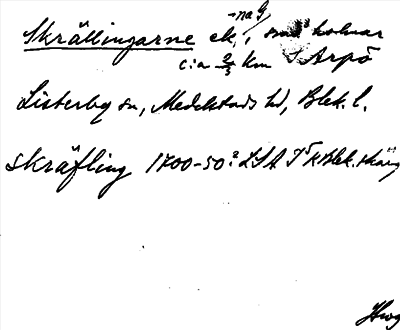 -na g
Skrällingarne ek., små holmar
c:a 2/3 km S Arpö
Listerby sn, Medelstads hd, Blek. l.
skräfling 1700-50? LSA T5 Blek. skärg